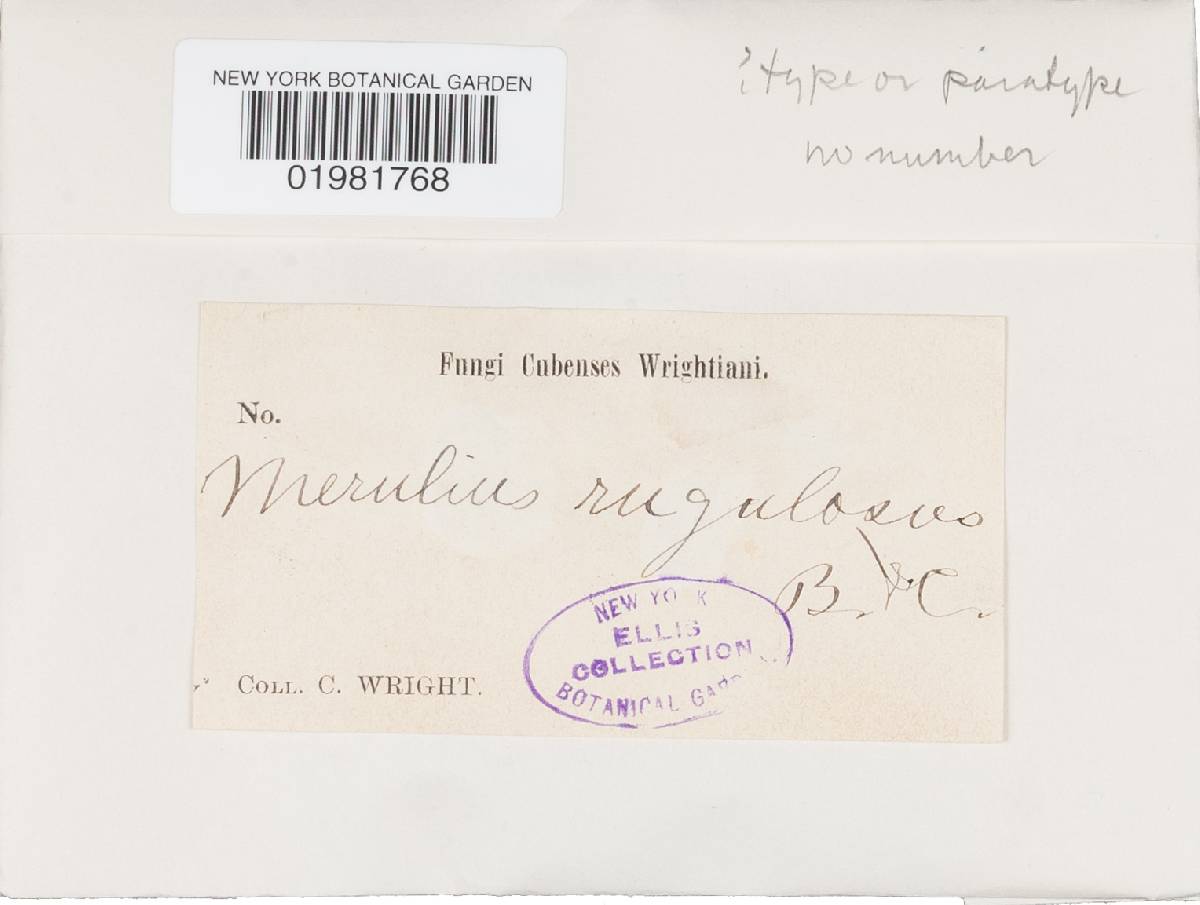 NEW YORK BOTANICAL GARDEN
01981768
? type or paratype
no number
Fungi Cubenses Wrightiani.
No.
Merulius rugulosus
B. & C.
NEW YORK
ELLIS
COLLECTION
BOTANICAL GARD
COLL. C. WRIGHT.